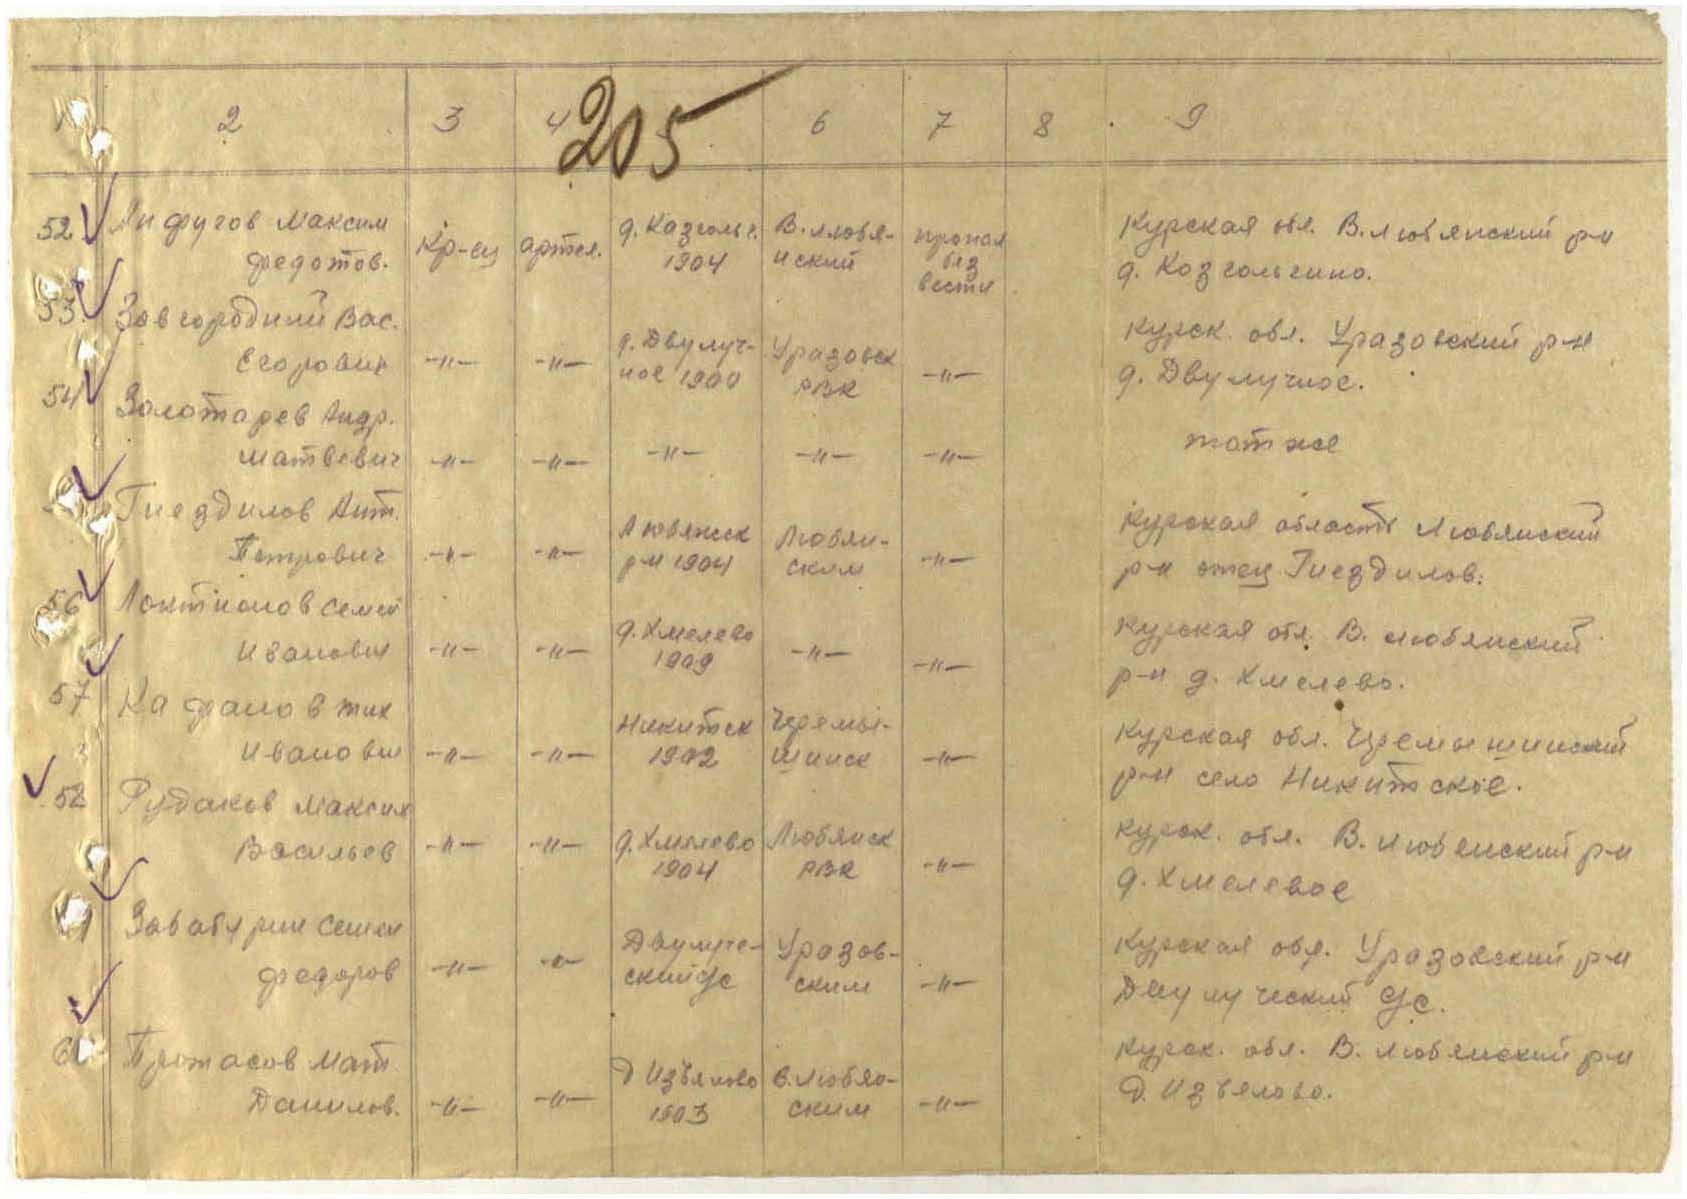 2 3 4 6 7 8 9
205
52 Максим Кр-ец артил. 1904 пропал Курская обл. В. Любянский р-н
Федотов. без вести д. Козгольгино.
53 Завгородний Вас. д. Двулуч- Уразовск Курск. обл. Уразовский р-н
Егорович -"- -"- ное 1900 РВК -"- д. Двулучное.
54 Золотарев Андр. тот же
Матвевич -"- -"- -"- -"- -"-
Гнездилов Ант. Любянск Любян- Курская область Любянский
Петрович -"- -"- р-н 1904 ским -"- р-н отец Гнездилов.
56 Локтионов Семен д. Хмелево Курская обл. В. Любянский
Иванович -"- -"- 1909 -"- -"- р-н д. Хмелево.
57 Кафанов Тих Никитск Черемы- Курская обл. Черемышинский
Иванович -"- -"- 1902 шинск -"- р-н село Никитское.
58 Рудаков Максим д. Хмелево Любянск Курск. обл. В. Любянский р-н
Васильев -"- -"- 1904 РВК -"- д. Хмелевое
Семен Двулуче- Уразов- Курская обл. Уразовский р-н
Федоров -"- -"- ский с/с ским -"- Двулуческий с/с.
Протасов Мат Д Извялово В. Любян- Курск. обл. В. Любянский р-н
Данилов. -"- -"- 1903 ским -"- Д. Извялово.